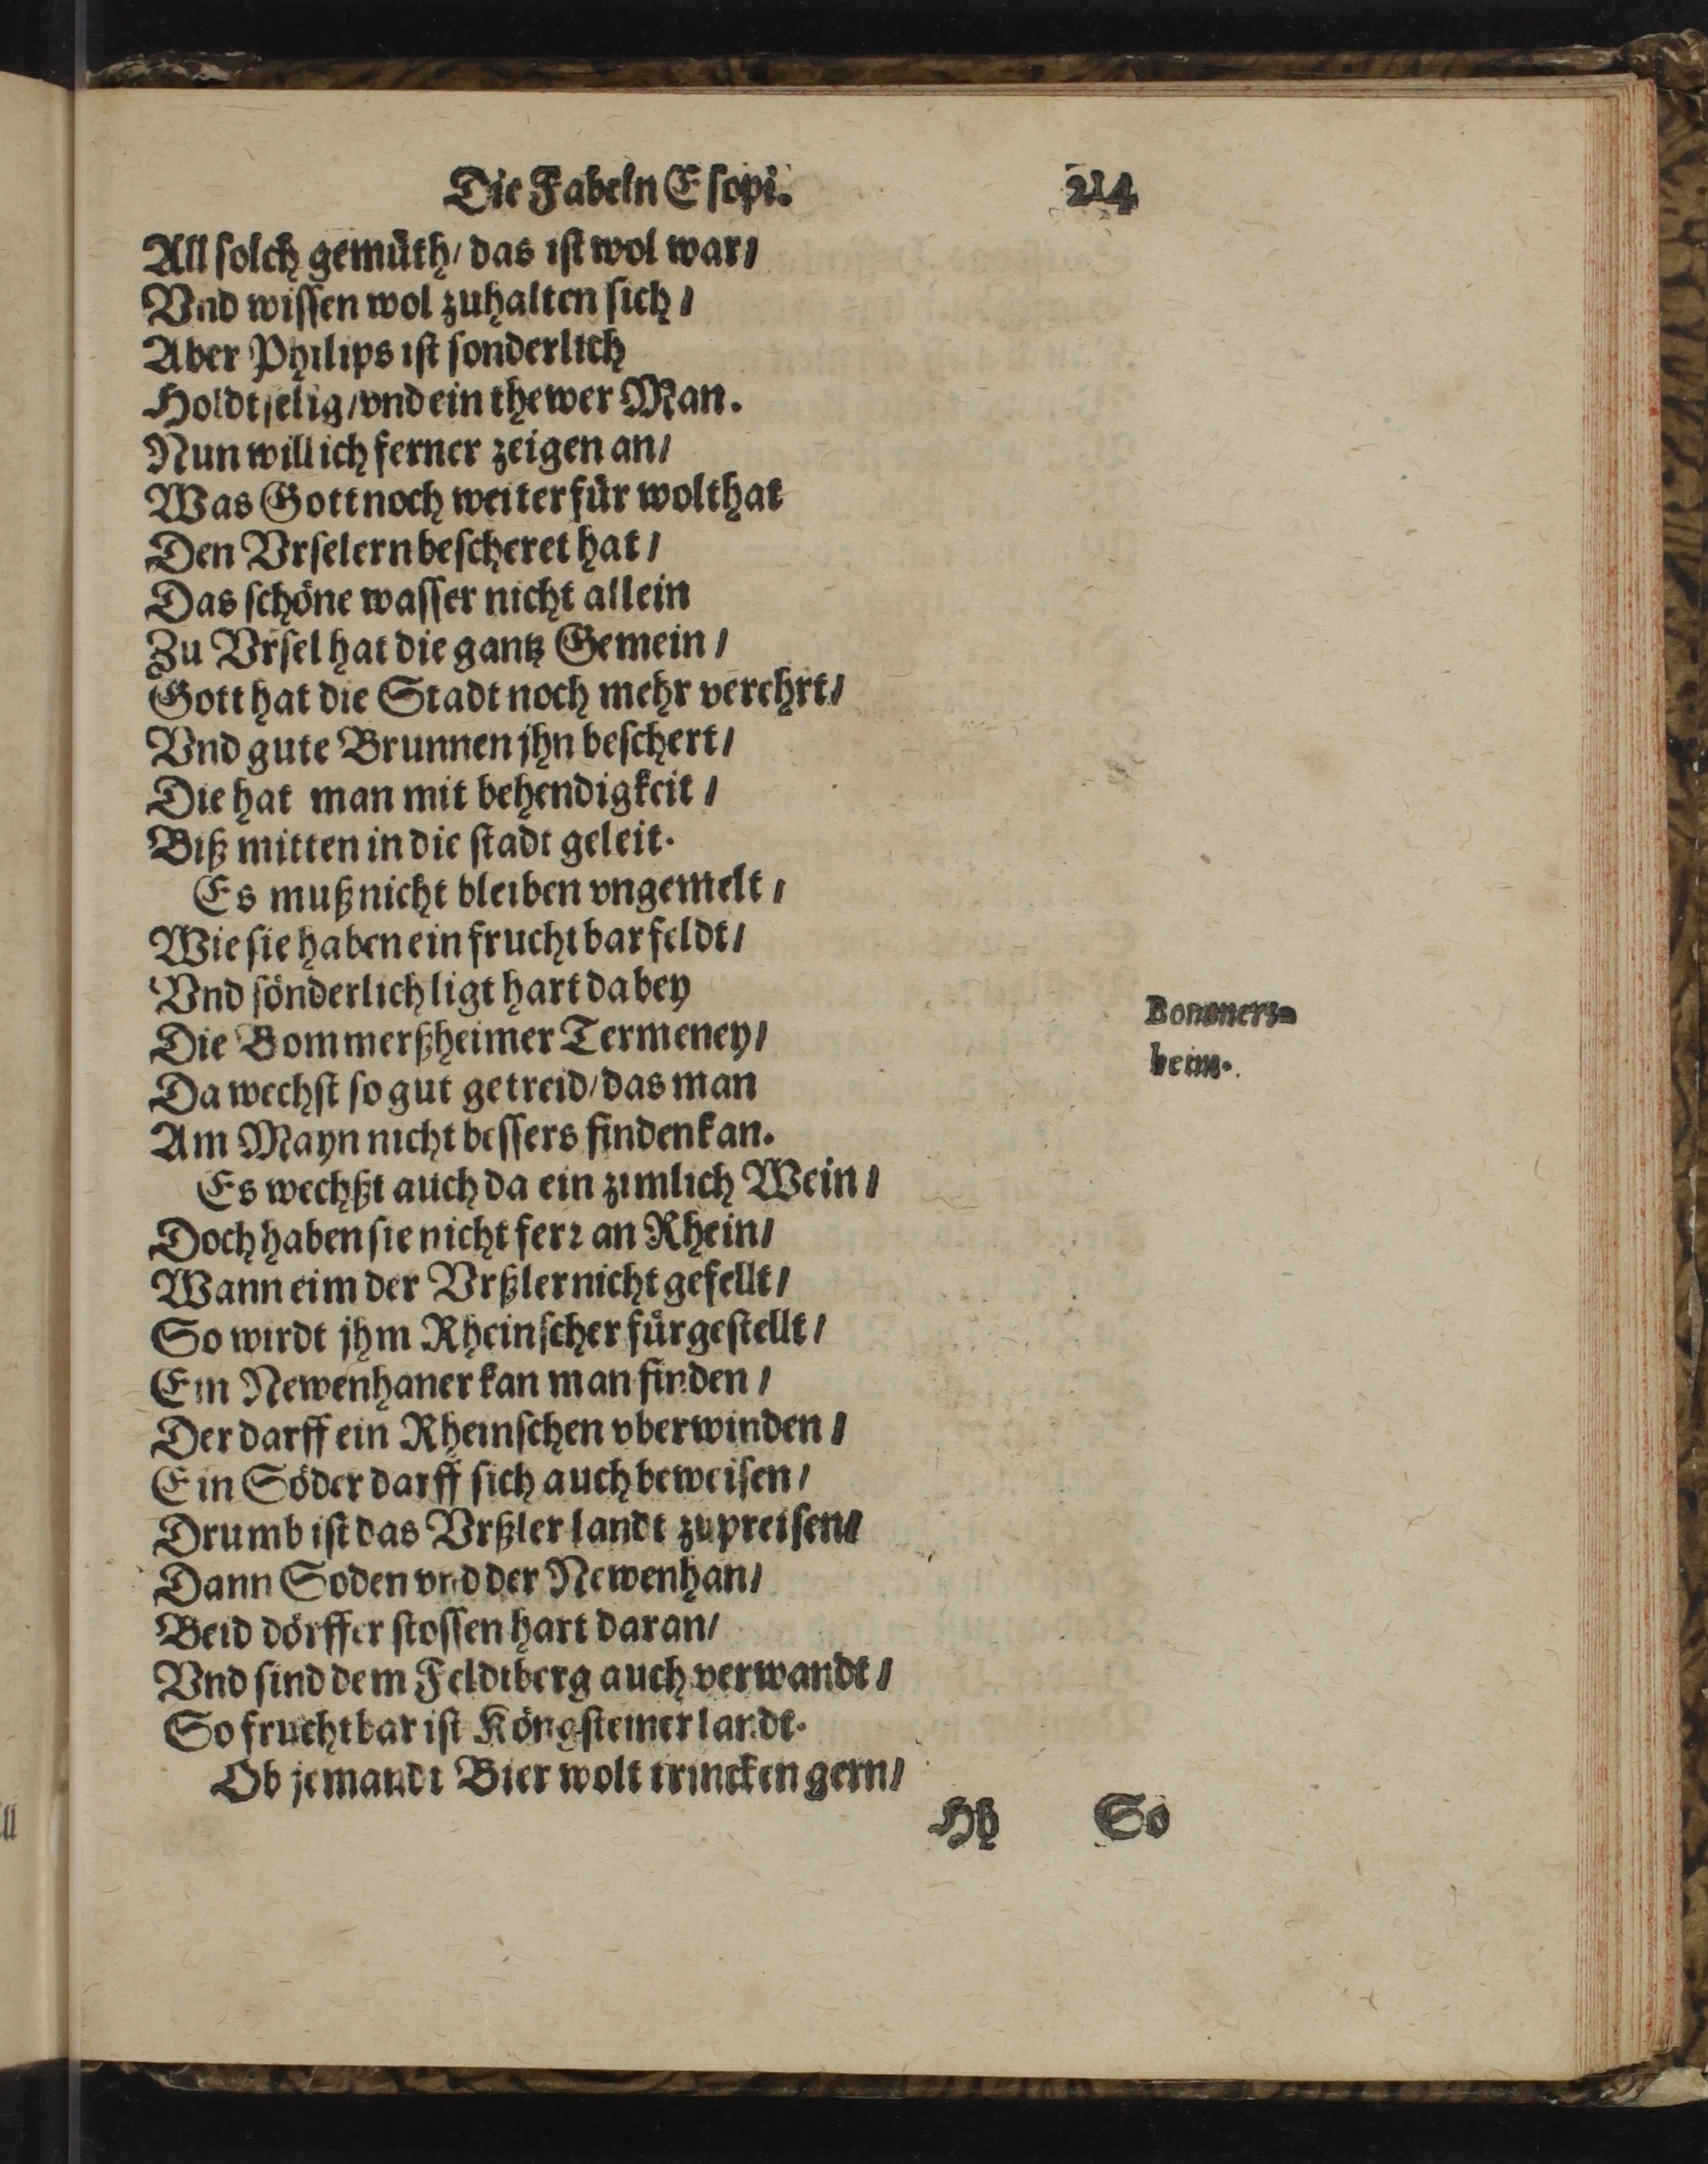 Die Fabeln Esopi. 214
All solch gemüth/ das ist wol war/
Vnd wissen wol zuhalten sich/
Aber Philips ist sonderlich
Holdtselig/ vnd ein thewer Man.
Nun will ich ferner zeigen an/
Was Gott noch weiter für wolthat
Den Vrselern bescheret hat/
Das schöne wasser nicht allein
Zu Vrsel hat die gantz Gemein/
Gott hat die Stadt noch mehr verehrt/
Vnd gute Brunnen jhn beschert/
Die hat man mit behendigkeit/
Biß mitten in die stadt geleit.
Es muß nicht bleiben vngemelt/
Wie sie haben ein fruchtbar feldt/
Vnd sönderlich ligt hart dabey
Die Bommerßheimer Termeney/
Bommers=
heim.
Da wechst so gut getreid/ das man
Am Mayn nicht bessers finden kan.
Es wechßt auch da ein zimlich Wein/
Doch haben sie nicht ferr an Rhein/
Wann eim der Vrßler nicht gefellt/
So wirdt jhm Rheinscher fürgestellt/
Ein Newenhaner kan man finden/
Der darff ein Rheinschen vberwinden/
Ein Söder darff sich auch beweisen/
Drumb ist das Vrßler landt zupreisen/
Dann Soden vnd der Newenhan/
Beid dörffer stossen hart daran/
Vnd sind dem Feldtberg auch verwandt/
So fruchtbar ist Köngsteiner landt.
Ob jemandt Bier wolt trincken gern/
Hh So